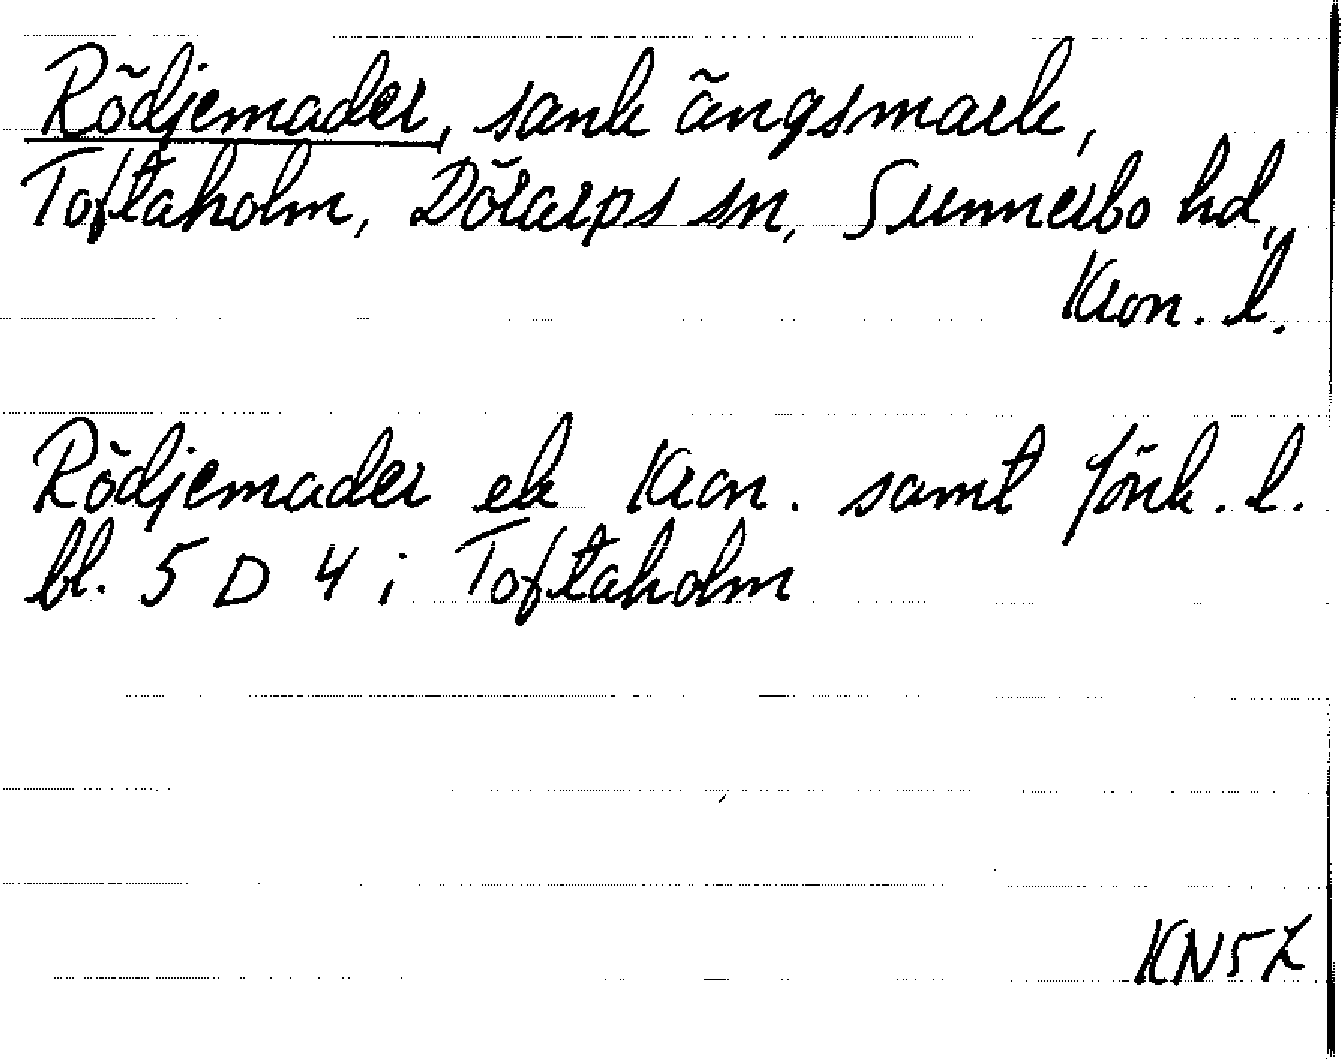 Rödjemader, sank ängsmark,
Toftaholm, Dörarps sn, Sunnerbo hd,
Kron. l.
Rödjemader ek Kron. samt Jönk. l.
bl. 5 D 4 i Toftaholm
KN57